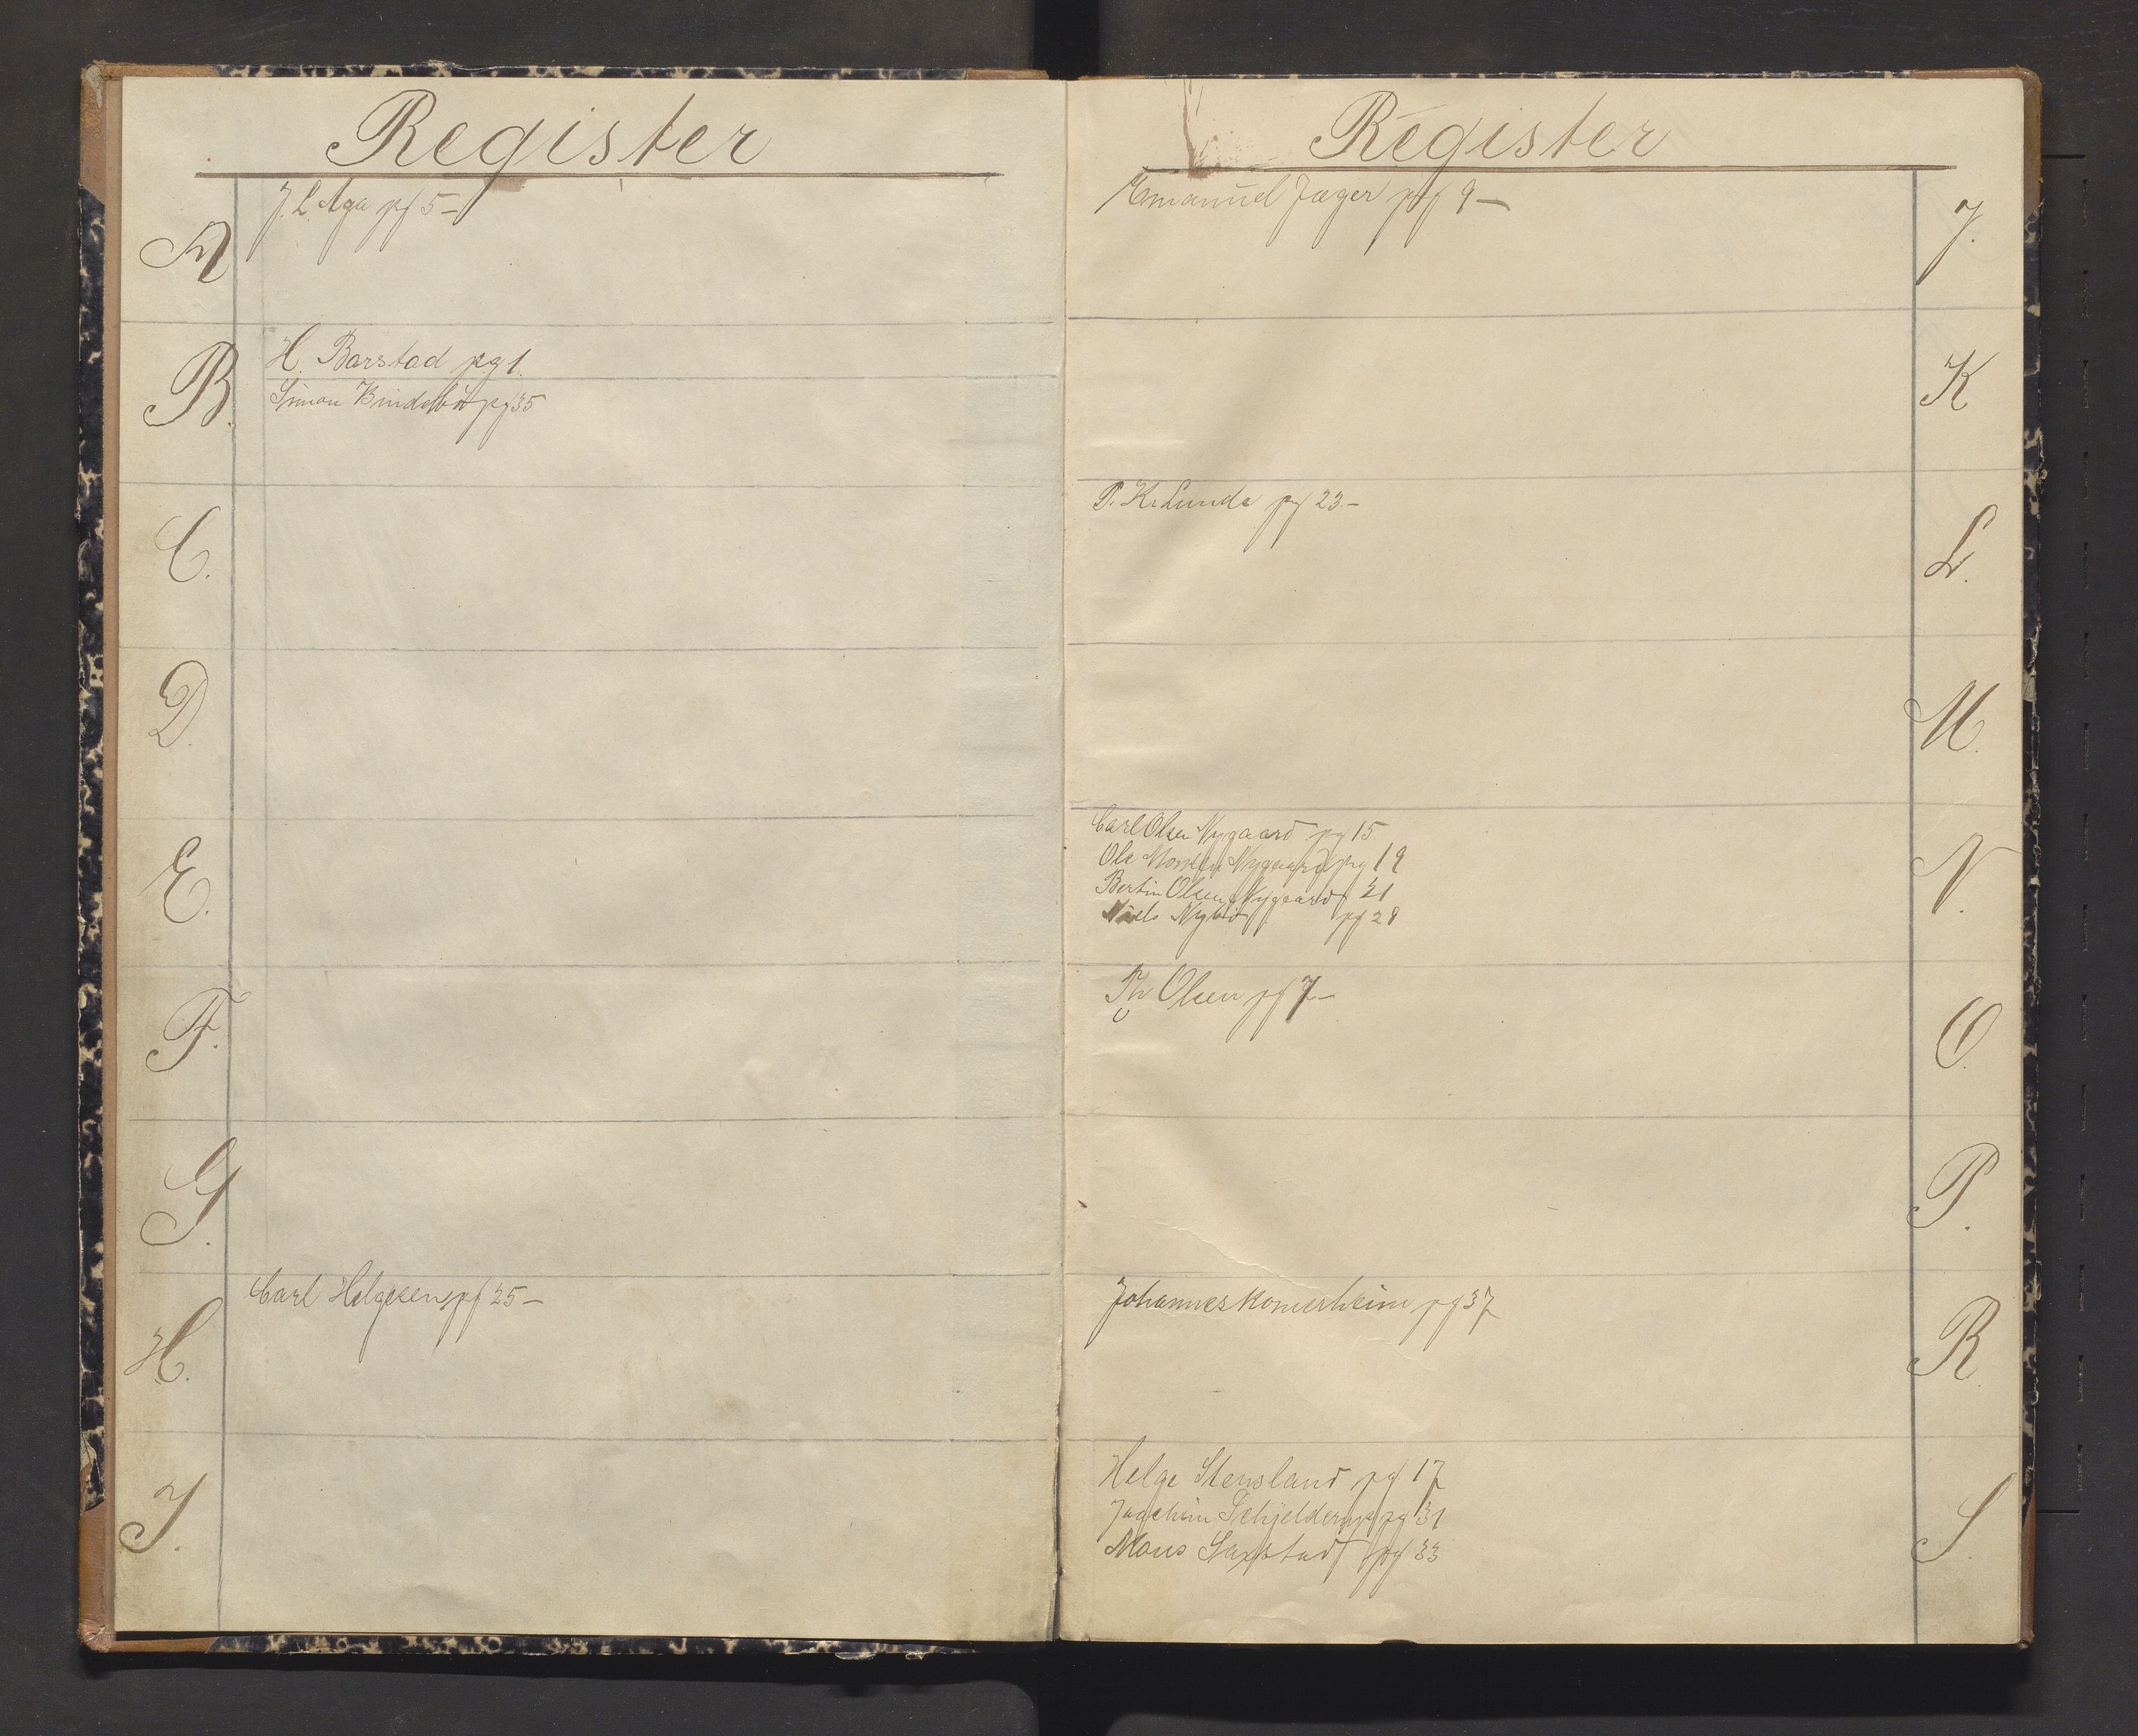 Register
A
J. L. Aga pg 5 –
B.
H. Barstad pg 1.
Simon Bindebö pg 35
C.
D.
E.
F.
G.
H.
Carl Helgesen pg 25 –
I.
Register
Emanuel Jæger pg 9 –
J.
K
P. Kr Lunde pg 23. –
L.
M.
Carl Olsen Nygaard pg 15
Ole Monsen Nygaard pg 19
Bertin Olsen Nygaard 21
Niels Nybö pg 28
N.
Th Olsen pg 7 –
O.
P.
Johannes Romerheim pg 37
R.
Helge Stensland pg 17
Joachim Schjelderup pg 31
Mons Saxstad pg 33
S.